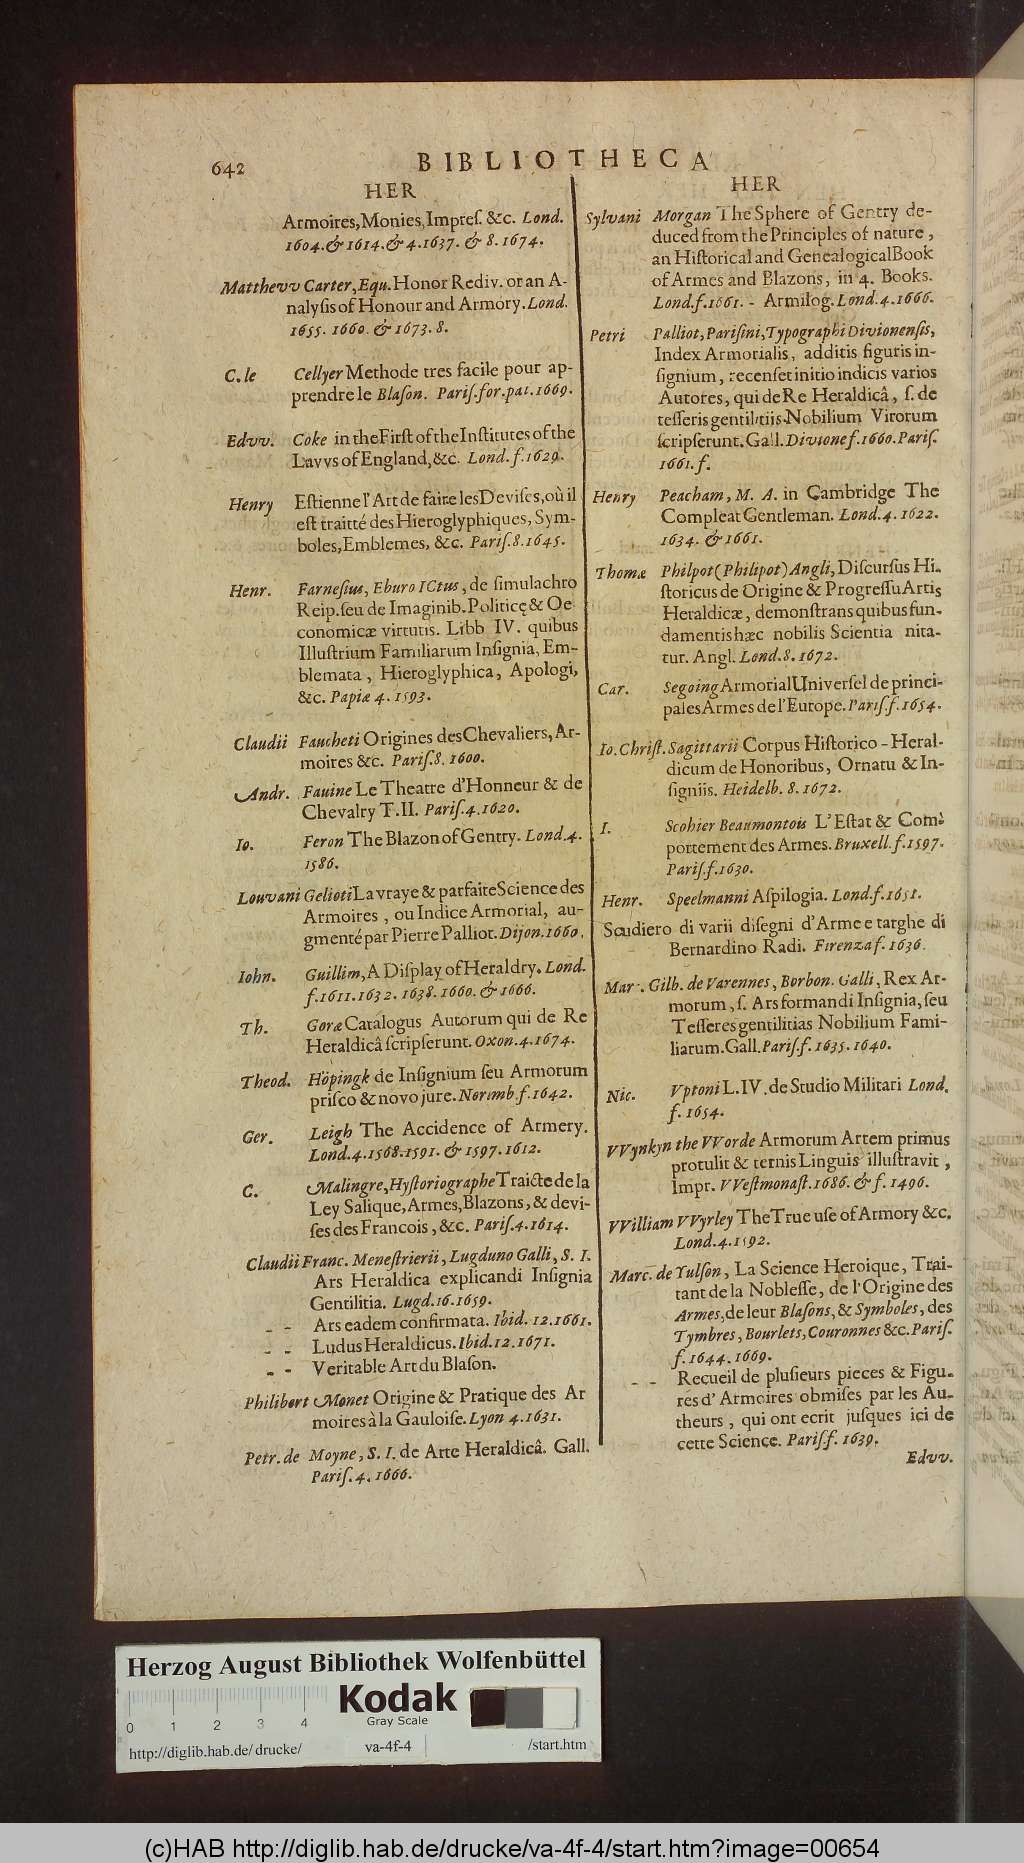 642
BIBLIOTHECA
HER
Armoires, Monies, Impreſ. &c. Lond.
1604. & 1614. & 4. 1637. & 8. 1674.
Matthevv Carter, Equ. Honor Rediv. or an A-
nalyſis of Honour and Armory. Lond.
1655. 1660. & 1673. 8.
C. le Cellyer Methode tres facile pour ap-
prendre le Blaſon. Pariſ. for. pat. 1669.
Edvv. Coke in the Firſt of the Inſtitutes of the
Lavvs of England, &c. Lond. f. 1629.
Henry Eſtienne l'Art de faire les Deviſes, où il
eſt traitté des Hieroglyphiques, Sym-
boles, Emblemes, &c. Pariſ. 8. 1645.
Henr. Farneſius, Eburo ICtus, de ſimulachro
Reip. ſeu de Imaginib. Politicę & Oe-
conomicæ virtutis. Libb IV. quibus
Illuſtrium Familiarum Inſignia, Em-
blemata, Hieroglyphica, Apologi,
&c. Papiæ 4. 1593.
Claudii Faucheti Origines des Chevaliers, Ar-
moires &c. Pariſ. 8. 1600.
Andr. Fauine Le Theatre d'Honneur & de
Chevalry T. II. Pariſ. 4. 1620.
Io. Feron The Blazon of Gentry. Lond. 4.
1586.
Louvani Gelioti La vraye & parfaite Science des
Armoires, ou Indice Armorial, au-
gmenté par Pierre Palliot. Dijon. 1660.
Iohn. Guillim, A Diſplay of Heraldry. Lond.
f. 1611. 1632. 1638. 1660. & 1666.
Th. Goræ Catalogus Autorum qui de Re
Heraldicâ ſcripſerunt. Oxon. 4. 1674.
Theod. Höpingk de Inſignium ſeu Armorum
priſco & novo jure. Norimb. f. 1642.
Ger. Leigh The Accidence of Armery.
Lond. 4. 1568. 1591. & 1597. 1612.
C. Malingre, Hyſtoriographe Traicte de la
Ley Salique, Armes, Blazons, & devi-
ſes des Francois, &c. Pariſ. 4. 1614.
Claudii Franc. Meneſtrierii, Lugduno Galli, S. I.
Ars Heraldica explicandi Inſignia
Gentilitia. Lugd. 16. 1659.
- - Ars eadem confirmata. Ibid. 12. 1661.
- - Ludus Heraldicus. Ibid. 12. 1671.
- - Veritable Art du Blaſon.
Philibert Monet Origine & Pratique des Ar
moires à la Gauloiſe. Lyon 4. 1631.
Petr. de Moyne, S. I. de Arte Heraldicâ. Gall.
Pariſ. 4. 1666.
HER
Sylvani Morgan The Sphere of Gentry de-
duced from the Principles of nature,
an Hiſtorical and Genealogical Book
of Armes and Blazons, in 4. Books.
Lond. f. 1661. - Armilog. Lond. 4. 1666.
Petri Palliot, Pariſini, Typographi Divionenſis,
Index Armorialis, additis figuris in-
ſignium, recenſet initio indicis varios
Autores, qui de Re Heraldicâ, ſ. de
teſſeris gentilitiis Nobilium Virorum
ſcripſerunt. Gall. Divione f. 1660. Pariſ.
1661. f.
Henry Peacham, M. A. in Cambridge The
Compleat Gentleman. Lond. 4. 1622.
1634. & 1661.
Thomæ Philpot (Philipot) Angli, Diſcurſus Hi-
ſtoricus de Origine & Progreſſu Artis
Heraldicæ, demonſtrans quibus fun-
damentis hæc nobilis Scientia nita-
tur. Angl. Lond. 8. 1672.
Car. Segoing Armorial Univerſel de princi-
pales Armes de l'Europe. Pariſ. f. 1654.
Io. Chriſt. Sagittarii Corpus Hiſtorico-Heral-
dicum de Honoribus, Ornatu & In-
ſigniis. Heidelb. 8. 1672.
I. Scohier Beaumontois L'Eſtat & Com-
portement des Armes. Bruxell. f. 1597.
Pariſ. f. 1630.
Henr. Speelmanni Aſpilogia. Lond. f. 1651.
Scudiero di varii diſegni d'Arme e targhe di
Bernardino Radi. Firenza f. 1636.
Mar. Gilb. de Varennes, Borbon. Galli, Rex Ar-
morum, ſ. Ars formandi Inſignia, ſeu
Teſſeres gentilitias Nobilium Fami-
liarum. Gall. Pariſ. f. 1635. 1640.
Nic. Vptoni L. IV. de Studio Militari Lond.
f. 1654.
VVynkyn the VVorde Armorum Artem primus
protulit & ternis Linguis illuſtravit,
Impr. VVeſtmonaſt. 1686. & f. 1496.
VVilliam VVyrley The True uſe of Armory &c.
Lond. 4. 1592.
Marc. de Vulſon, La Science Heroique, Trai-
tant de la Nobleſſe, de l'Origine des
Armes, de leur Blaſons, & Symboles, des
Tymbres, Bourlets, Couronnes &c. Pariſ.
f. 1644. 1669.
- - Recueil de pluſieurs pieces & Figu-
res d'Armoires obmiſes par les Au-
theurs, qui ont ecrit juſques ici de
cette Science. Pariſ. f. 1639.
Edvv.
Herzog August Bibliothek Wolfenbüttel
Kodak
Gray Scale
0 1 2 3 4
http://diglib.hab.de/drucke/ va-4f-4 /start.htm
(c)HAB http://diglib.hab.de/drucke/va-4f-4/start.htm?image=00654